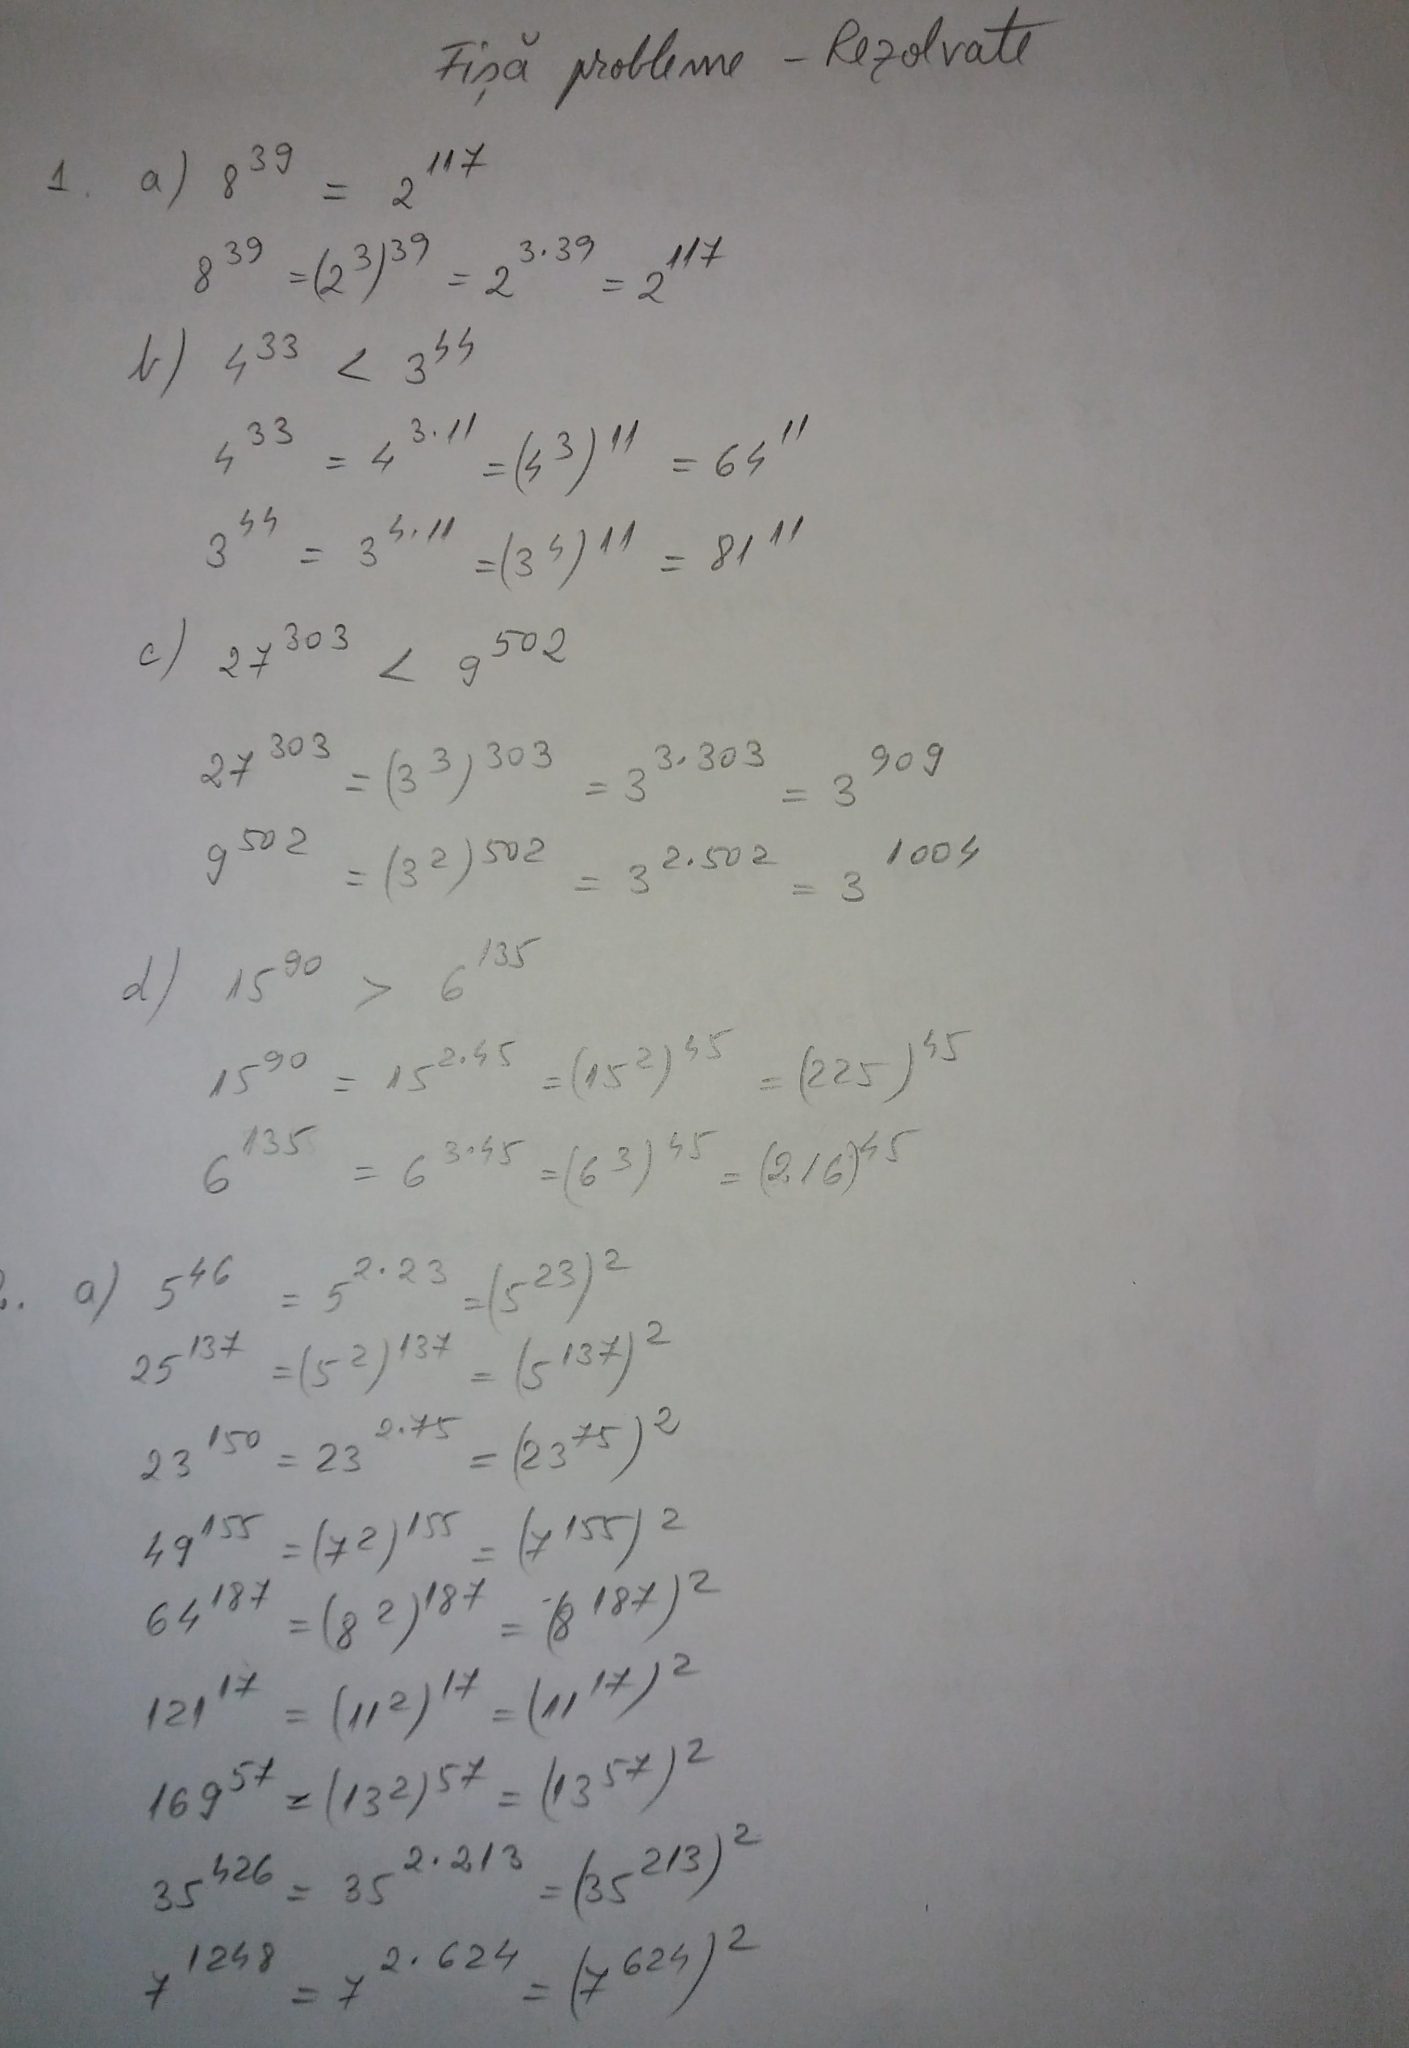 Fișă probleme - Rezolvate
1. a) 8^39 = 2^117
8^39 = (2^3)^39 = 2^3·39 = 2^117
b) 4^33 < 3^44
4^33 = 4^3·11 = (4^3)^11 = 64^11
3^44 = 3^4·11 = (3^4)^11 = 81^11
c) 27^303 < 9^502
27^303 = (3^3)^303 = 3^3·303 = 3^909
9^502 = (3^2)^502 = 3^2·502 = 3^1004
d) 15^90 > 6^135
15^90 = 15^2·45 = (15^2)^45 = (225)^45
6^135 = 6^3·45 = (6^3)^45 = (216)^45
2. a) 5^46 = 5^2·23 = (5^23)^2
25^137 = (5^2)^137 = (5^137)^2
23^150 = 23^2·75 = (23^75)^2
49^155 = (7^2)^155 = (7^155)^2
64^187 = (8^2)^187 = (8^187)^2
121^17 = (11^2)^17 = (11^17)^2
169^57 = (13^2)^57 = (13^57)^2
35^426 = 35^2·213 = (35^213)^2
7^1248 = 7^2·624 = (7^624)^2